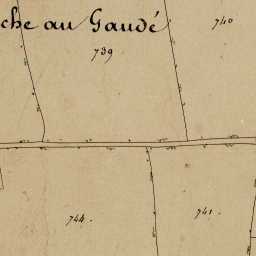 che au Gaudé
740
739
744.
741.